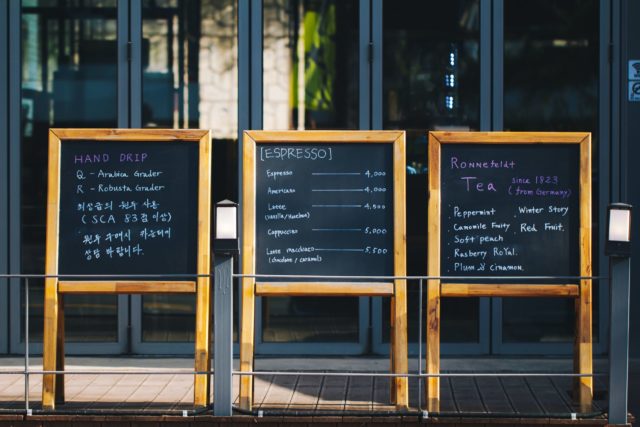 HAND DRIP
Q - Arabica Grader
R - Robusta Grader
최상급의 원두 사용
(SCA 83점 이상)
원두 구매시 카운터에
상담 바랍니다.
[ESPRESSO]
Espresso 4,000
Americano 4,000
Latte 4,500
(Vanilla/Hazelnut)
Cappuccino 5,000
Latte macchiato 5,500
(chocolate / caramel)
Ronnefeldt
Tea since 1823
(from Germany)
· Peppermint · Winter Story
· Camomile Fruity · Red Fruit.
· Soft peach
· Rasberry RoYal.
· Plum & cinnamon.